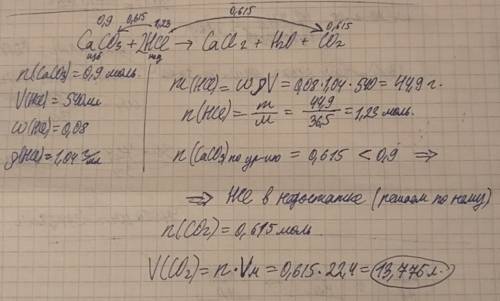 0,9 0,615 1,23 0,615 0,615
CaCO₃ + 2HCl → CaCl₂ + H₂O + CO₂
изб нед
n(CaCO₃) = 0,9 моль.
V(HCl) = 540 мл
w(HCl) = 0,08
ρ(HCl) = 1,04 г/мл
m(HCl) = w·ρ·V = 0,08·1,04·540 = 44,9 г.
n(HCl) = m/M = 44,9/36,5 = 1,23 моль.
n(CaCO₃) по ур-ию = 0,615 < 0,9 ⇒
⇒ HCl в недостатке (решаем по нему)
n(CO₂) = 0,615 моль.
V(CO₂) = n·Vм = 0,615·22,4 = 13,776 л.